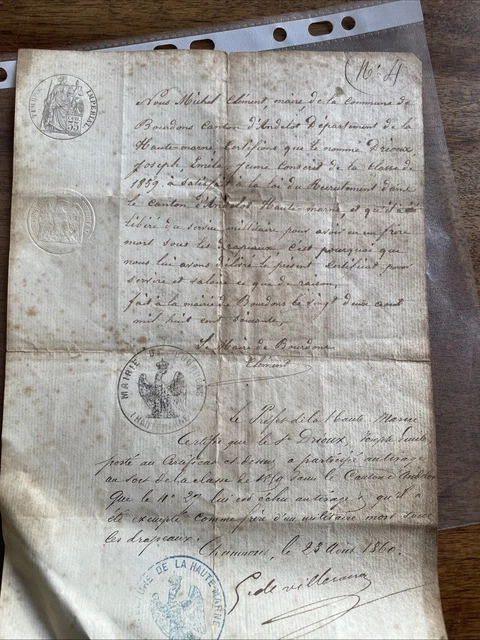 N°: 4
TIMBRE IMPERIAL
Nous Michel Clément, maire de la Commune de
Bourdons Canton d'Andelot Département de la
Haute-marne, Certifions que le nommé Drioux
Joseph Emile Jeune Conscrit de la Classe de
1859. a satisfait à la loi du Recrutement dans
le Canton d'Andelot Haute-marne, et qu'il a été
libéré du service militaire pour avoir eu un frère
mort sous les drapeaux. C'est pourquoi que
nous lui avons délivré le présent Certificat pour
servir et valoir ce que de raison,
fait à la mairie de Bourdons le vingt deux août
mil huit cent soixante,
Le Maire de Bourdons
Clément
MAIRIE DE
(HAUTE MARNE)
Le Préfet de la Haute Marne
Certifie que le Sr Drioux, Joseph Emile
porté au Certificat ci dessus a participé au tirage
au sort de la classe de 1859 dans le Canton d'Andelot
que le n° 27 lui est échu au tirage, qu'il a
été exempté comme frère d'un militaire mort sous
les drapeaux.
Chaumont, le 23 Août 1860.
DE LA HAUTE-MARNE